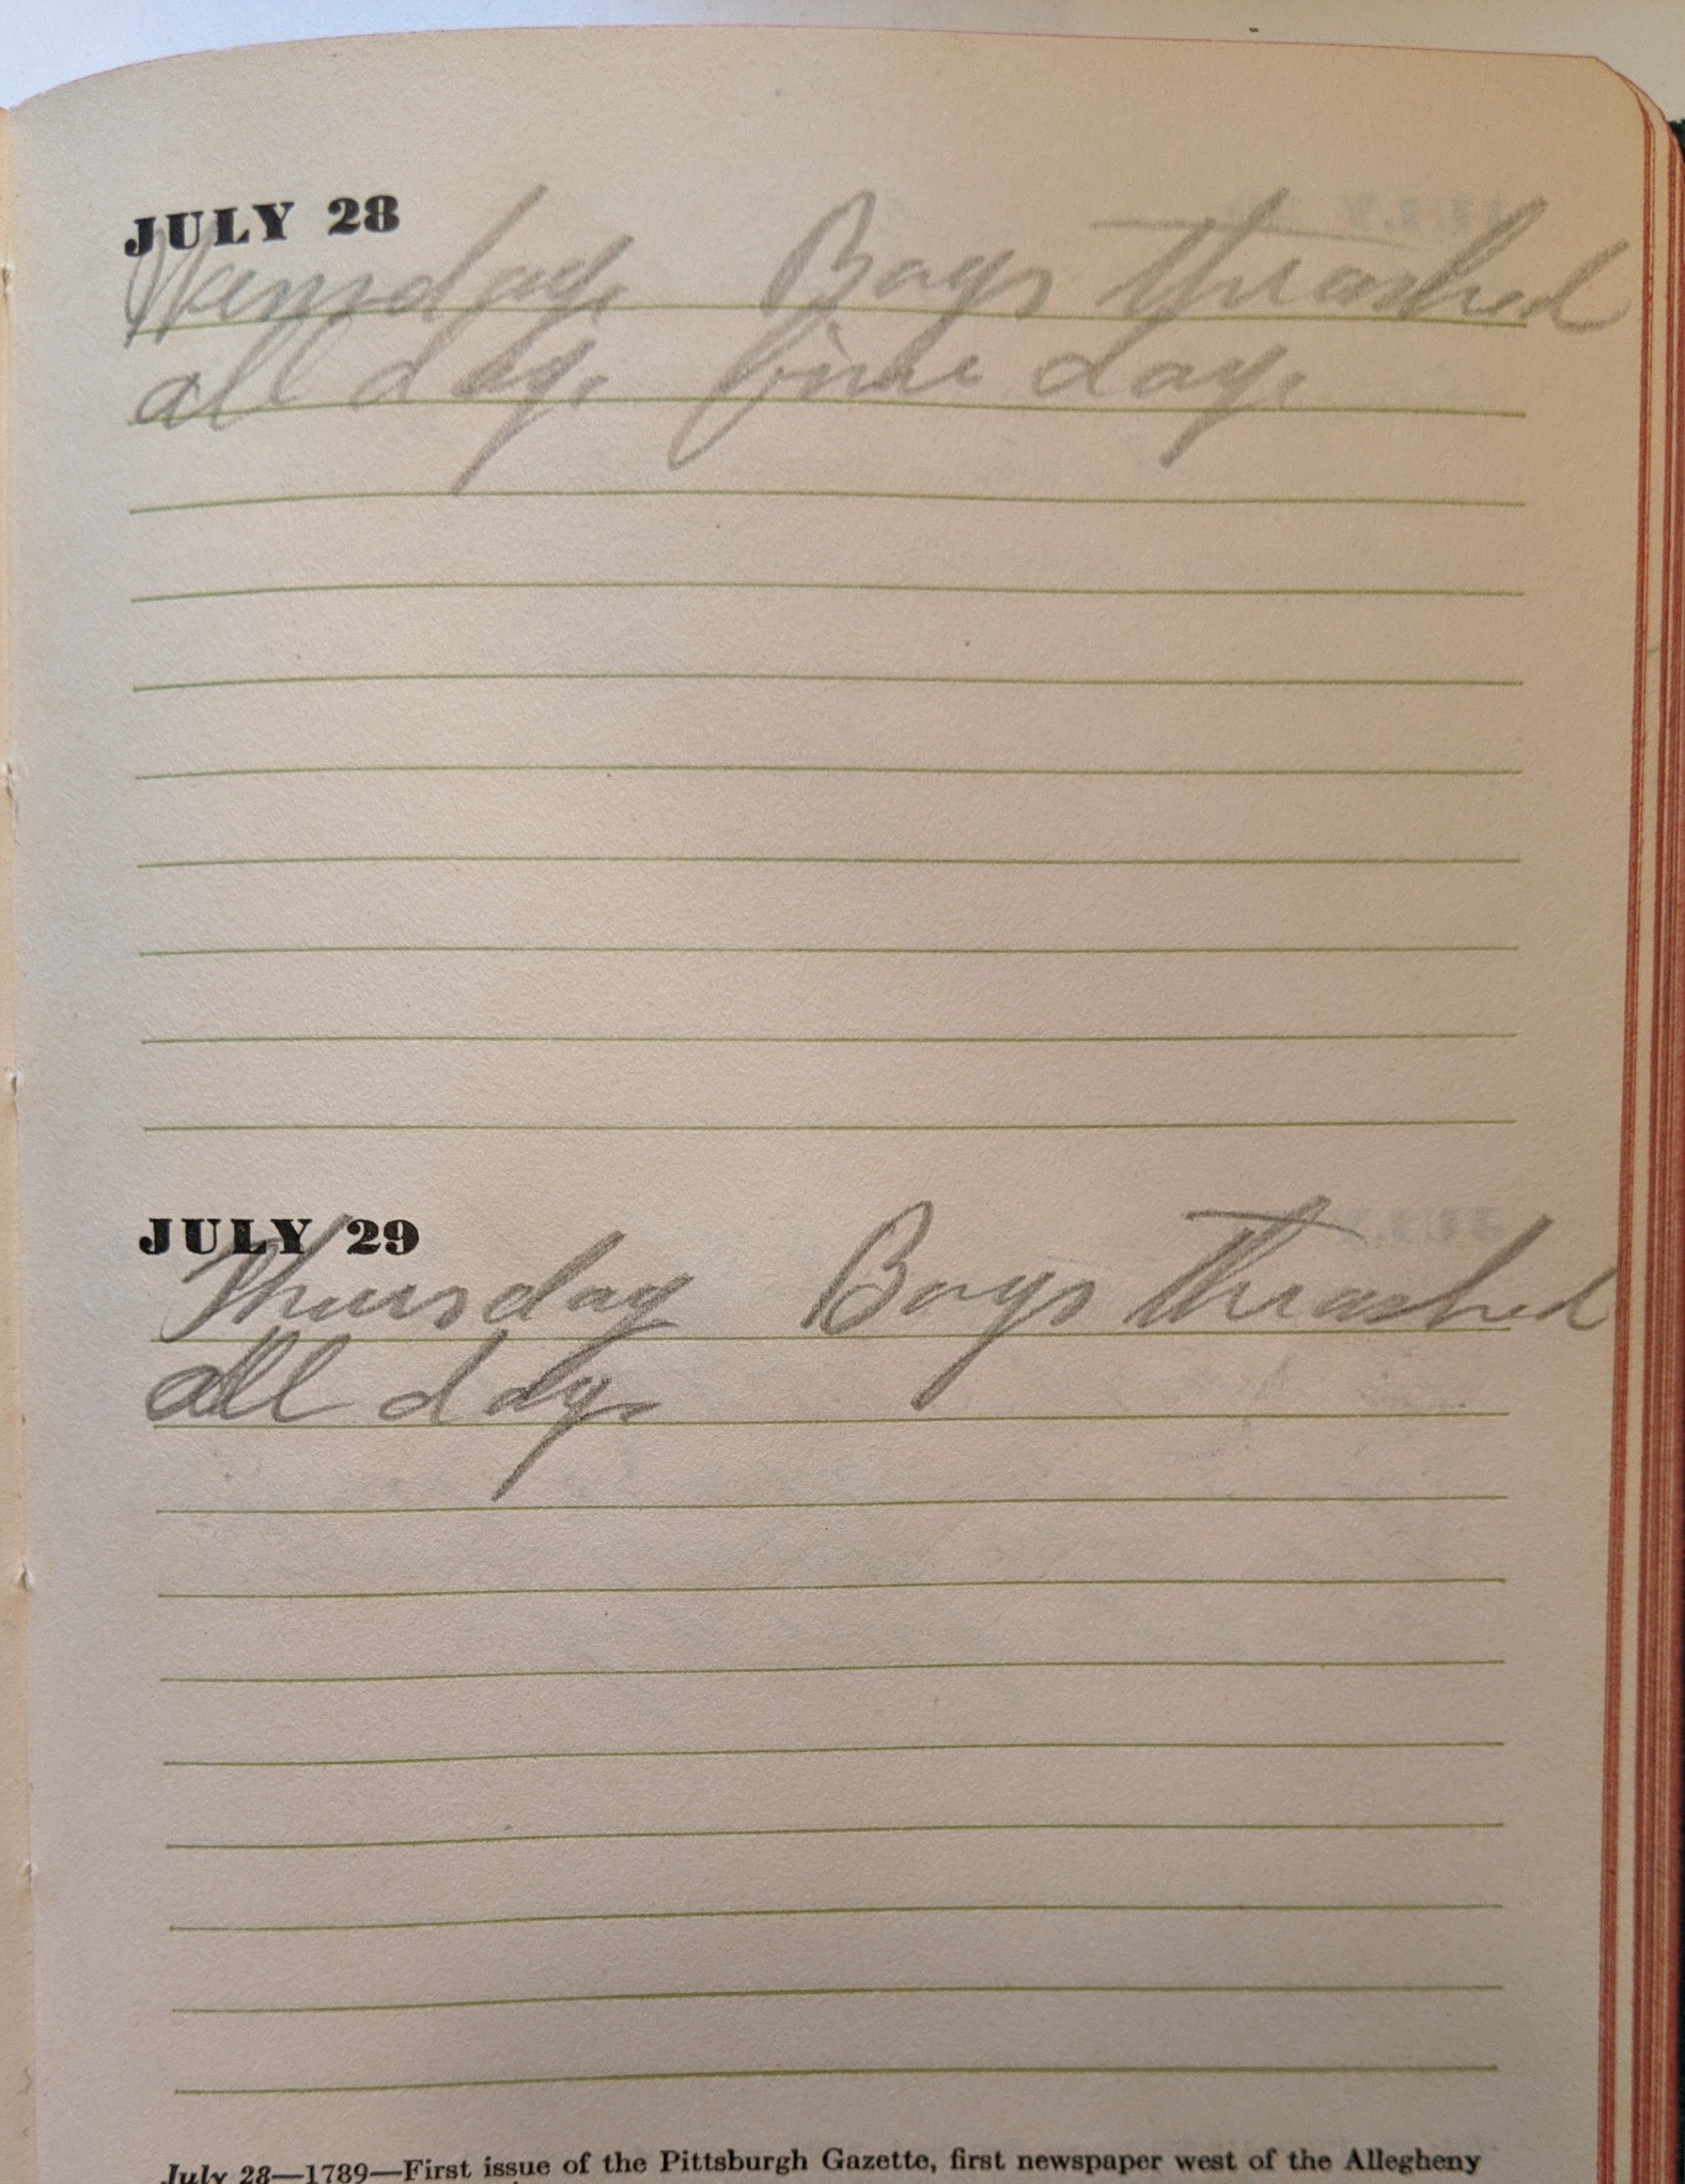 JULY 28
Wensday. Boys thrashed
all day. fine day.
JULY 29
Thursday Boys thrashed
all day.
July 28—1789—First issue of the Pittsburgh Gazette, first newspaper west of the Allegheny